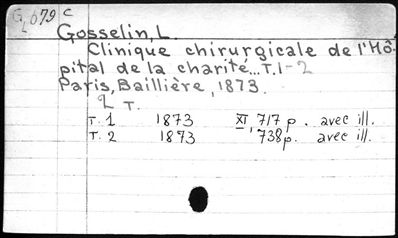 G 679 c
Gosselin, L.
Clinique chirurgicale de l'Hô-
pital de la charité...T.1-2
Paris, Baillière, 1873.
2 T.
T. 1 1873 XI, 717 p. avec ill.
T. 2 1873 738p. avec ill.